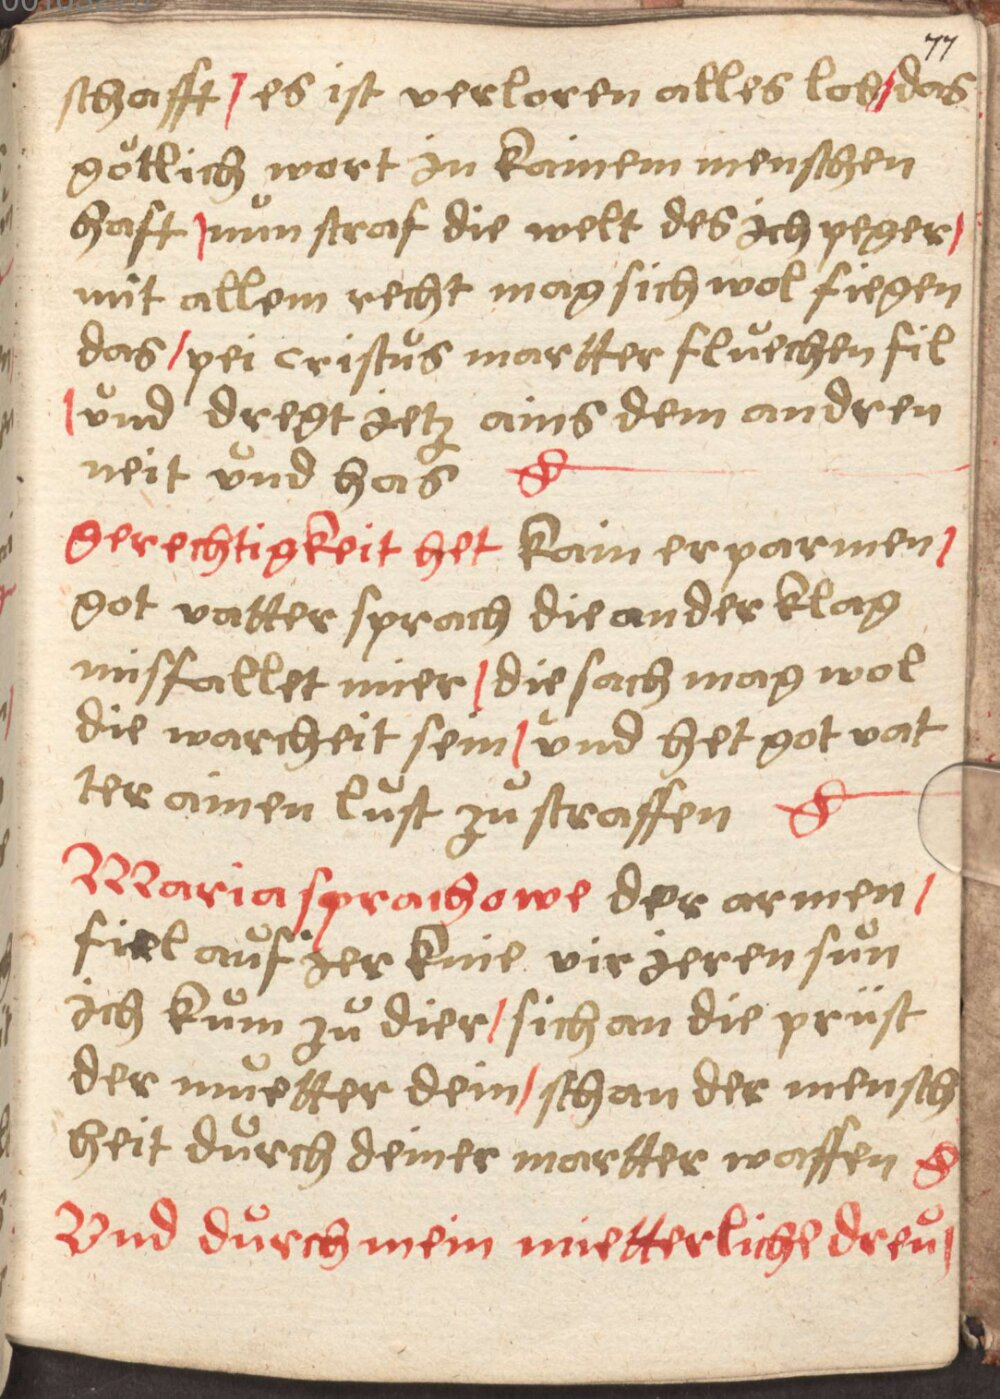 77
schafft / es ist verloren alles lob / das
götlich wort in kainem menschen
haft / nun straf die welt des ich peger /
mit allem recht mag sich wol fiegen
das / pei cristůs martter flůechen fil
/ vnd dregt jetz ains dem andren
neit vnd has
gerechtigkeit het kain erparmen /
got vatter sprach die ander klag
missfallet mier / die sach mag wol
die warcheit sein / vnd het got vat
ter ainen lůst zů straffen
Maria sprach owe der armen /
fiel aůf jer knie vir jeren sůn
ich kům zů dier / sich an die prüst
der můetter dein / schan der mensch
heit důrch deiner martter waffen
Vnd důrch mein mietterliche dreů /